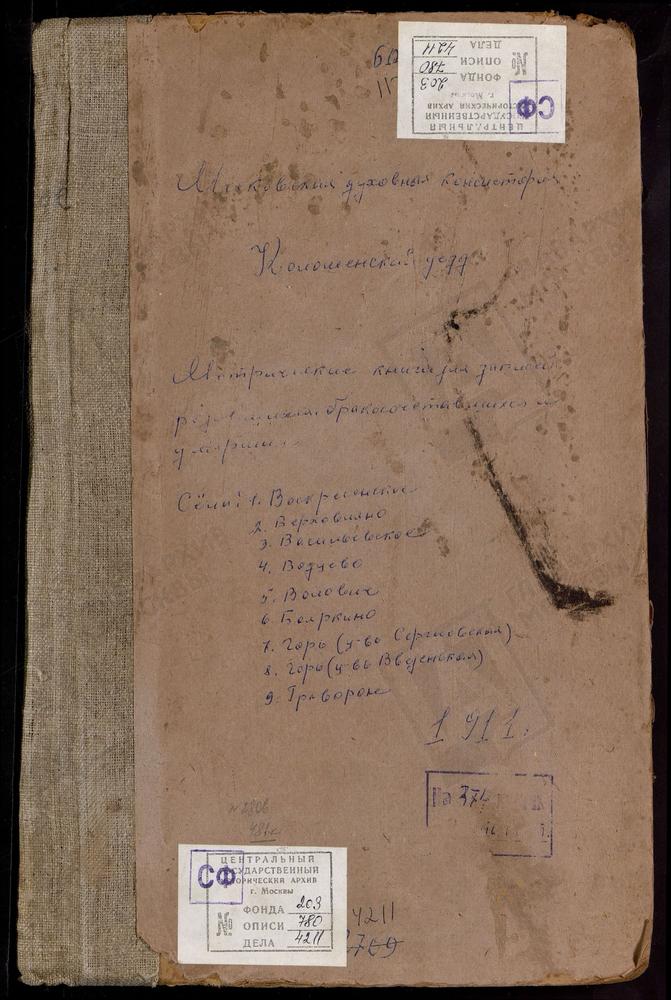 ЦЕНТРАЛЬНЫЙ
ГОСУДАРСТВЕННЫЙ
ИСТОРИЧЕСКИЙ АРХИВ
г. Москвы
СФ
№
ФОНДА 203
ОПИСИ 780
ДЕЛА 4211
Московская духовная консистория
Коломенский уезд
Метрические книги для записей
родившихся, бракосочетавшихся и
умерших.
Сёлы: 1. Воскресенское
2. Верховляно
3. Васильевское
4. Водуево
5. Воловичи
6. Бояркино
7. Горы (ц-вь Сергиевская)
8. Горы (ц-вь Введенская)
9. Грворон
1911.
На 374
№ 2806
ЦЕНТРАЛЬНЫЙ
ГОСУДАРСТВЕННЫЙ
ТОРИЧЕСКИЙ АРХИВ
г. Москвы
СФ
№
ФОНДА 203
ОПИСИ 780
ДЕЛА 4211
4211